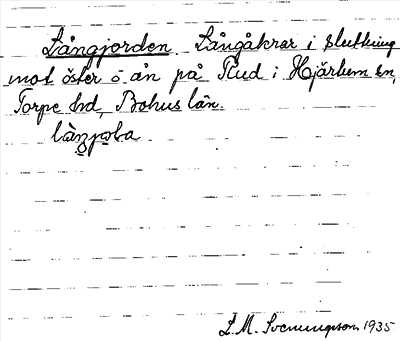 Långjorden Långåkrar i sluttning
mot öster o. ån på Rud i Hjärtum sn,
Torpe hd, Bohus län.
L. M. Svenungsson 1935